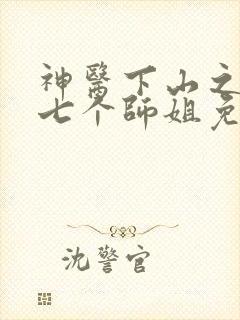 神醫下山之
七个师姐免
沈警官